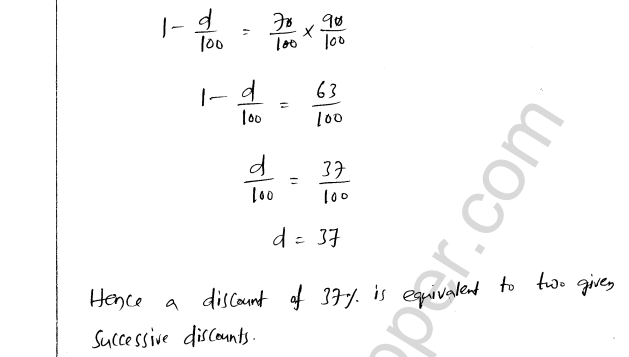 1 - d/100 = 70/100 × 90/100
1 - d/100 = 63/100
d/100 = 37/100
d = 37
Hence a discount of 37% is equivalent to two given
successive discounts.
oper.com